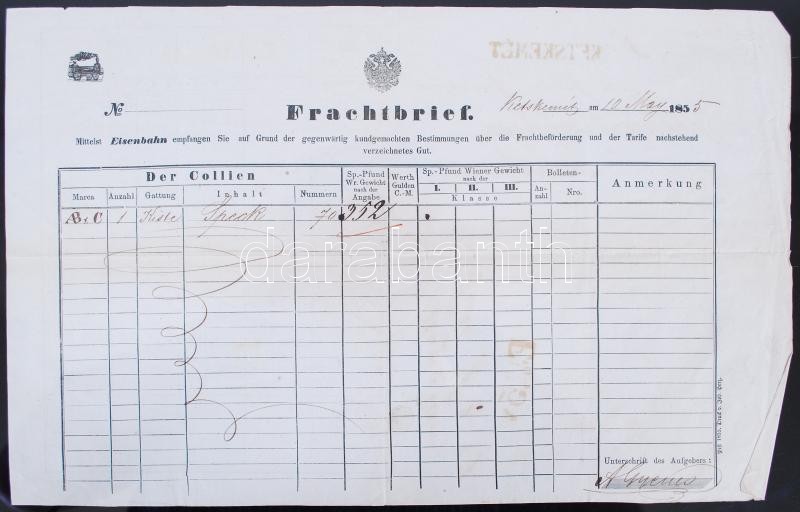 KETSKEMÉT
No
Frachtbrief.
Ketskemét am 10 May 1855
Mittelst Eisenbahn empfangen Sie auf Grund der gegenwärtig kundgemachten Bestimmungen über die Frachtbeförderung und der Tarife nachstehend
verzeichnetes Gut.
Der Collien
Marca Anzahl Gattung Inhalt Nummern
Sp.-Pfund Wr. Gewicht nach der Angabe
Werth Gulden C.-M.
Sp.-Pfund Wiener Gewicht nach der
I. II. III.
Klasse
Bolleten-
An-zahl Nro.
Anmerkung
1 Kiste Speck 70 352
darabanth
Unterschrift des Aufgebers: